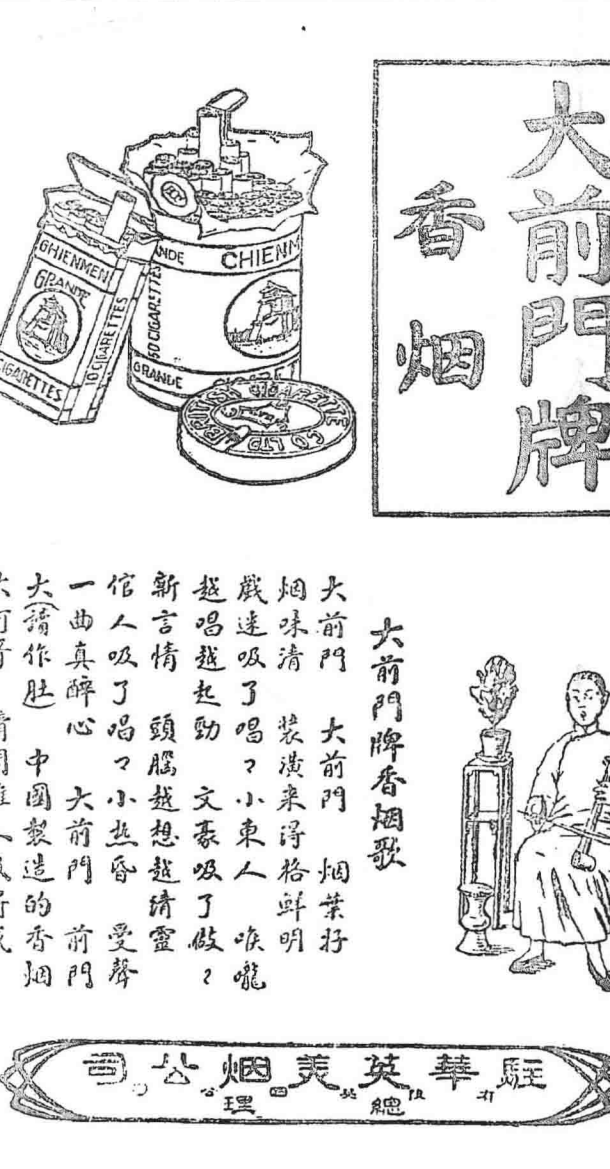 大前門牌
香烟
CHIENMEN
GRANDE
CIGARETTES
10 CIGARETTES
GRANDE
CHIENM
50 CIGARETTES
GRANDE
BRITISH CIGARETTE CO LTD
大前門牌香烟歌
大前門 大前門 烟葉好
烟味清 裝潢來得格鮮明
戲迷吸了唱々小東人 喉嚨
越唱越起勁 文豪吸了做々
新言情 頭腦越想越清靈
倌人吸了唱々小熱昏 受聲
一曲真醉心 大前門 前門
大(讀作肚) 中國製造的香烟
駐華英美烟公司
總理